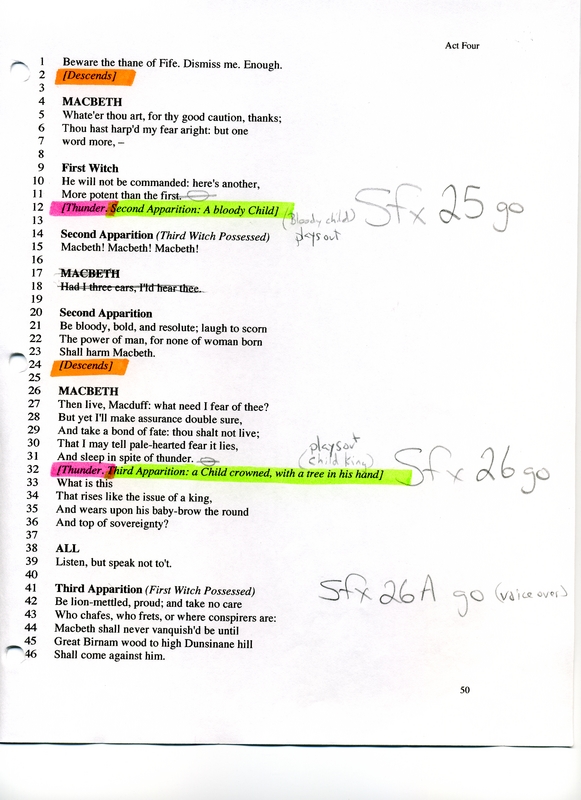 Act Four
1 Beware the thane of Fife. Dismiss me. Enough.
2 [Descends]
3
4 MACBETH
5 Whate'er thou art, for thy good caution, thanks;
6 Thou hast harp'd my fear aright: but one
7 word more, –
8
9 First Witch
10 He will not be commanded: here's another,
11 More potent than the first.
12 [Thunder. Second Apparition: A bloody Child]
(bloody child) Sfx 25 go
playsout
13
14 Second Apparition (Third Witch Possessed)
15 Macbeth! Macbeth! Macbeth!
16
17 MACBETH
18 Had I three ears, I'ld hear thee.
19
20 Second Apparition
21 Be bloody, bold, and resolute; laugh to scorn
22 The power of man, for none of woman born
23 Shall harm Macbeth.
24 [Descends]
25
26 MACBETH
27 Then live, Macduff: what need I fear of thee?
28 But yet I'll make assurance double sure,
29 And take a bond of fate: thou shalt not live;
30 That I may tell pale-hearted fear it lies,
31 And sleep in spite of thunder.
playsout
(child king) Sfx 26 go
32 [Thunder. Third Apparition: a Child crowned, with a tree in his hand]
33 What is this
34 That rises like the issue of a king,
35 And wears upon his baby-brow the round
36 And top of sovereignty?
37
38 ALL
39 Listen, but speak not to't.
40
41 Third Apparition (First Witch Possessed)
Sfx 26A go (voice over)
42 Be lion-mettled, proud; and take no care
43 Who chafes, who frets, or where conspirers are:
44 Macbeth shall never vanquish'd be until
45 Great Birnam wood to high Dunsinane hill
46 Shall come against him.
50